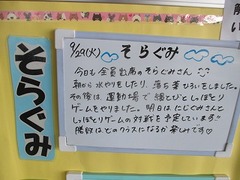 そらぐみ
9/29(火) そらぐみ
今日も全員出席のそらぐみさん
朝から水やりをしたり、落ち葉ひろいをしました。
その後は、運動場で縄とびとしっぽとり
ゲームをやりました。明日はにじぐみさんと
しっぽとりゲームの対戦を予定しています!!
勝敗はどのクラスになるか楽しみです